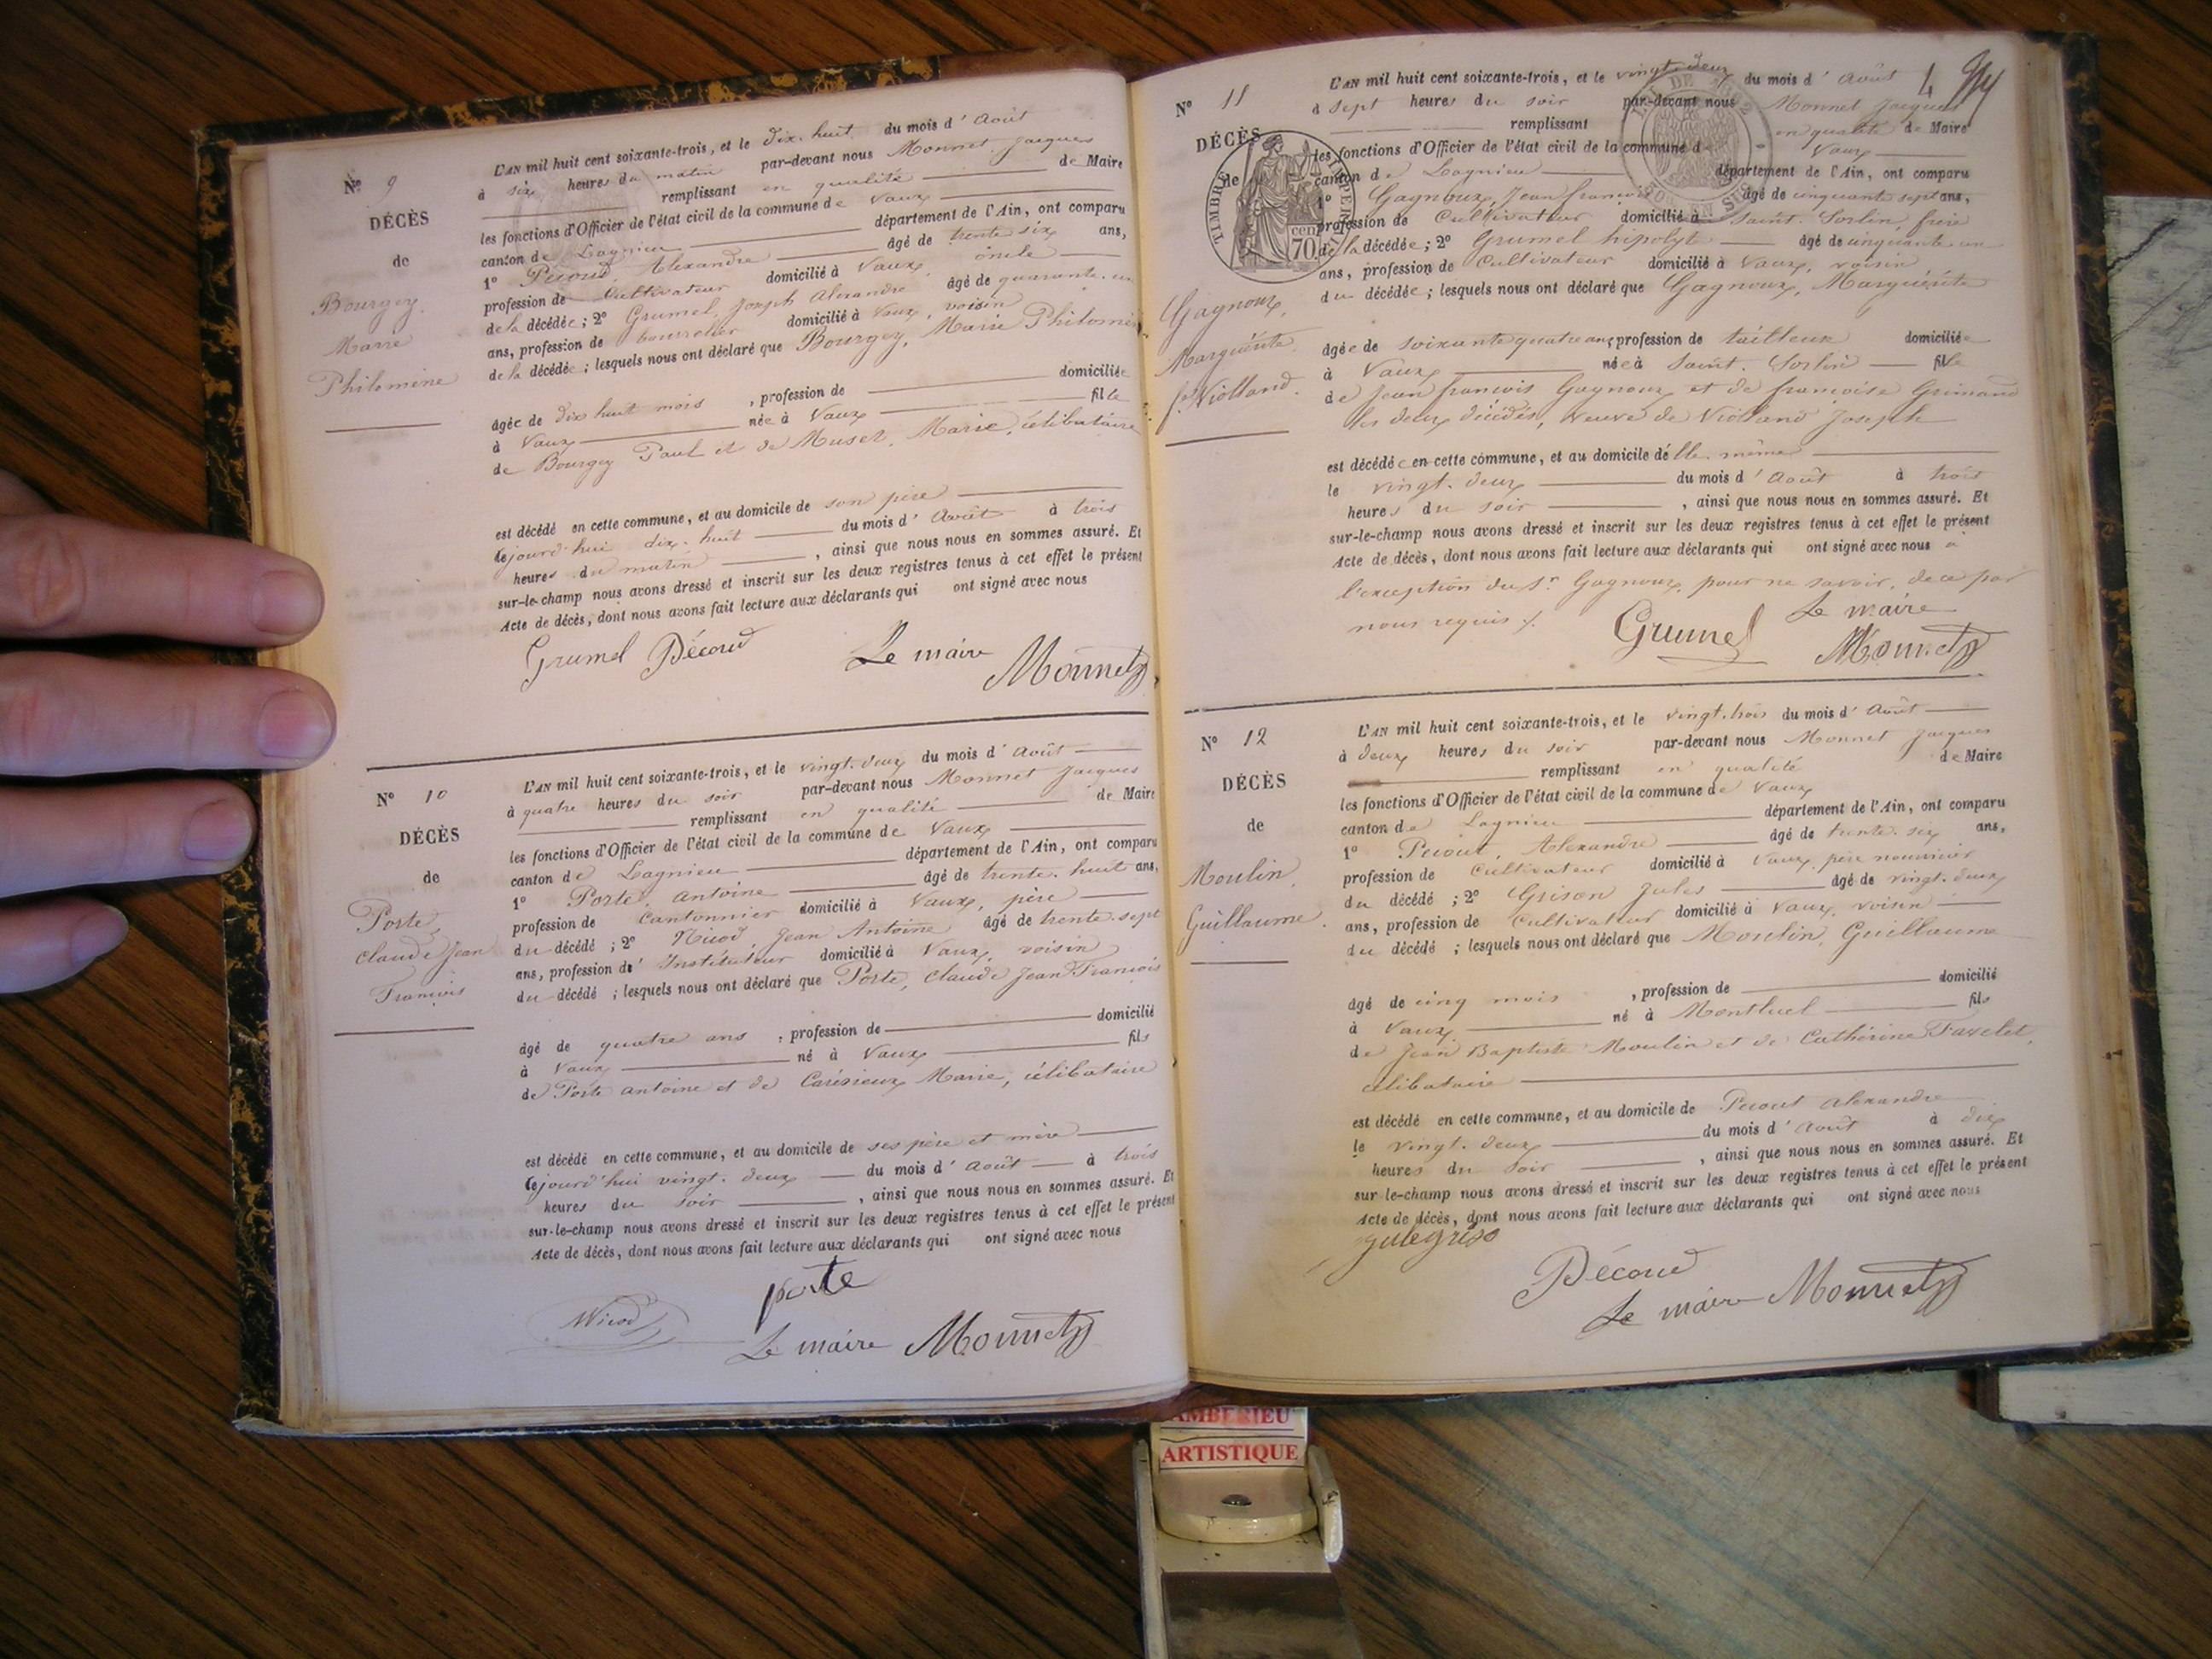 N° 9
DÉCÈS
de
Bourgey,
Marie
Philomine
L'AN mil huit cent soixante-trois, et le dix-huit du mois d'Août
à six heures du matin par-devant nous Monnet Jacques
remplissant en qualité de Maire
les fonctions d'Officier de l'état civil de la commune de Vaux
canton de Lagnieu département de l'Ain, ont comparu
1° Alexandre âgé de trente six ans,
profession de Cultivateur domicilié à Vaux, oncle
de la décédée ; 2° Grumel, Joseph Alexandre âgé de quarante-un
ans, profession de bourrelier domicilié à Vaux, voisin
de la décédée ; lesquels nous ont déclaré que Bourgey, Marie Philomine
âgée de dix huit mois , profession de domiciliée
à Vaux née à Vaux fille
de Bourgey Paul et de Muset, Marie, célibataire
est décédé en cette commune, et au domicile de son père
cejourd'hui dix-huit du mois d'Août à trois
heures du matin , ainsi que nous nous en sommes assuré. Et
sur-le-champ nous avons dressé et inscrit sur les deux registres tenus à cet effet le présent
Acte de décès, dont nous avons fait lecture aux déclarants qui ont signé avec nous
Grumel Découd Le maire Monnet
N° 10
DÉCÈS
de
Porte,
Claude Jean
François
L'AN mil huit cent soixante-trois, et le vingt-deux du mois d'Août
à quatre heures du soir par-devant nous Monnet Jacques
remplissant en qualité de Maire
les fonctions d'Officier de l'état civil de la commune de Vaux
canton de Lagnieu département de l'Ain, ont comparu
1° Porte, Antoine âgé de trente-huit ans,
profession de Cantonnier domicilié à Vaux, père
du décédé ; 2° Nicod, Jean Antoine âgé de trente-sept
ans, profession d'Instituteur domicilié à Vaux, voisin
du décédé ; lesquels nous ont déclaré que Porte, Claude Jean François
âgé de quatre ans , profession de domicilié
à Vaux né à Vaux fils
de Porte Antoine et de Marie, célibataire
est décédé en cette commune, et au domicile de ses père et mère
cejourd'hui vingt-deux du mois d'Août à trois
heures du soir , ainsi que nous nous en sommes assuré. Et
sur-le-champ nous avons dressé et inscrit sur les deux registres tenus à cet effet le présent
Acte de décès, dont nous avons fait lecture aux déclarants qui ont signé avec nous
porte
Nicod
Le maire Monnet
N° 11
DÉCÈS
de
Gagnoux,
Marguérite
Violland.
TIMBRE IMPERIAL
70 cen
L'AN mil huit cent soixante-trois, et le vingt-deux du mois d'Août
à sept heures du soir par-devant nous Monnet Jacques
remplissant en qualité de Maire
les fonctions d'Officier de l'état civil de la commune d Vaux
canton de Lagnieu département de l'Ain, ont comparu
1° Gagnoux, Jean françois âgé de cinquante sept ans,
profession de Cultivateur domicilié à Saint-Sorlin, frère
de la décédée ; 2° Grumel hipolyte âgé de cinquante un
ans, profession de Cultivateur domicilié à Vaux, voisin
du décédée ; lesquels nous ont déclaré que Gagnoux, Marguérite
âgée de soixante quatre ans, profession de tailleuse domiciliée
à Vaux née à Saint-Sorlin fille
de Jean francois Gagnoux et de françoise Grimand
les deux décédés, veuve de Violland Joseph
est décédée en cette commune, et au domicile d'elle-même
le vingt-deux du mois d'Août à trois
heures du soir , ainsi que nous nous en sommes assuré. Et
sur-le-champ nous avons dressé et inscrit sur les deux registres tenus à cet effet le présent
Acte de décès, dont nous avons fait lecture aux déclarants qui ont signé avec nous à
l'exception du Sr Gagnoux, pour ne savoir, de ce par
nous requis.
Grumel Le maire
Monnet
N° 12
DÉCÈS
de
Moulin,
Guillaume
L'AN mil huit cent soixante-trois, et le vingt-trois du mois d'Août
à deux heures du soir par-devant nous Monnet Jacques
remplissant en qualité de Maire
les fonctions d'Officier de l'état civil de la commune de Vaux
canton de Lagnieu département de l'Ain, ont comparu
1° Alexandre âgé de trente-six ans,
profession de Cultivateur domicilié à Vaux, père nourricier
du décédé ; 2° Grison Jules âgé de vingt-deux
ans, profession de Cultivateur domicilié à Vaux, voisin
du décédé ; lesquels nous ont déclaré que Moulin, Guillaume
âgé de cinq mois , profession de domicilié
à Vaux né à Montluel fils
de Jean Baptiste Moulin et de Cathérine
célibataire
est décédé en cette commune, et au domicile de Alexandre
le vingt-deux du mois d'Août à dix
heures du soir , ainsi que nous nous en sommes assuré. Et
sur-le-champ nous avons dressé et inscrit sur les deux registres tenus à cet effet le présent
Acte de décès, dont nous avons fait lecture aux déclarants qui ont signé avec nous
Découd
Le maire Monnet
AMBERIEU
ARTISTIQUE